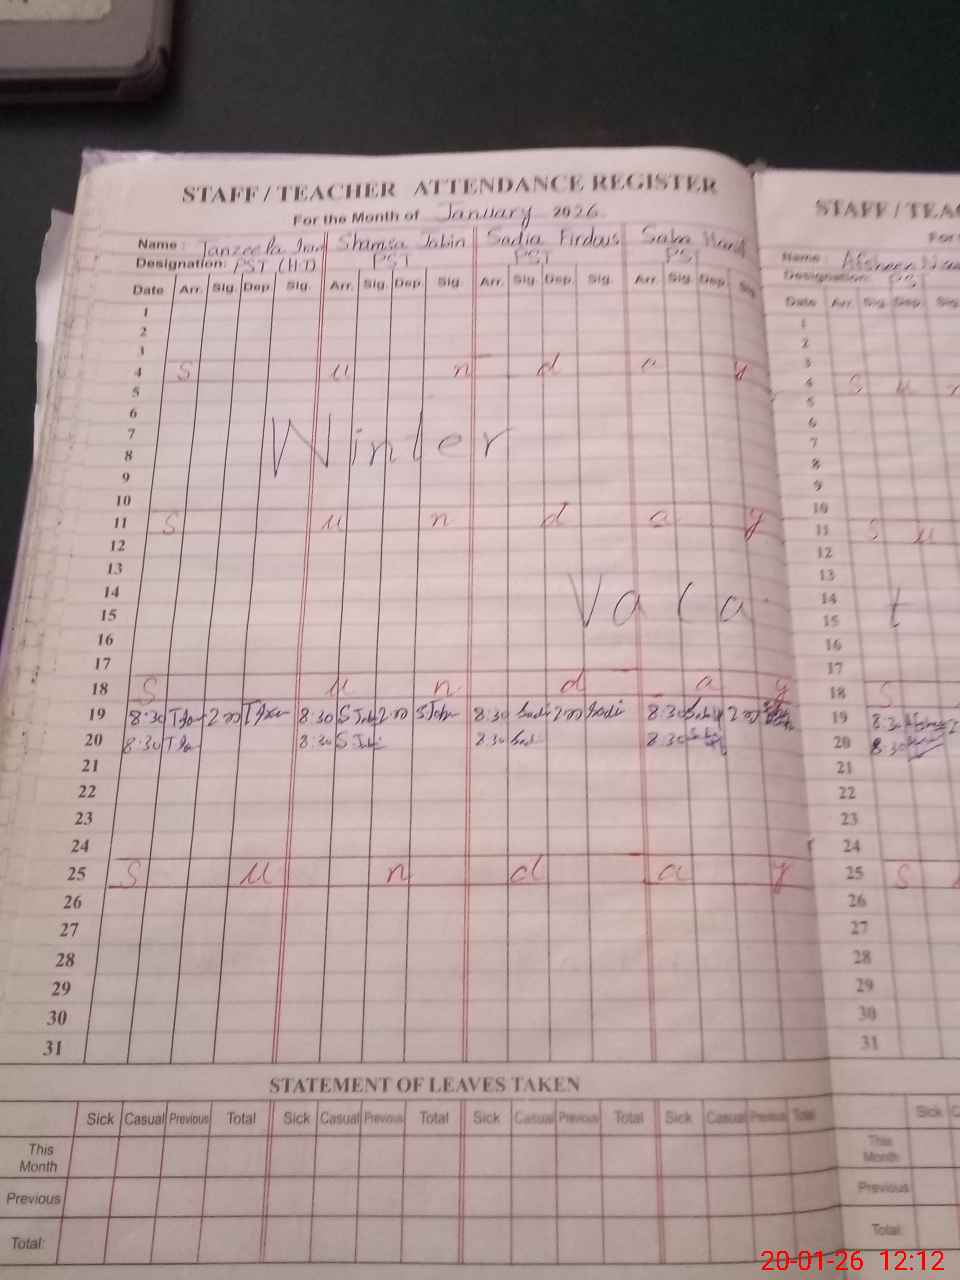 STAFF / TEACHER ATTENDANCE REGISTER
For the Month of January 2026
Name : Tanzeela Shamsa Jabin Sadia Firdous Saba
Designation: PST (H.T) PST PST PST
Date Arr. Sig. Dep Sig. Arr. Sig. Dep. Sig. Arr. Sig. Dep. Sig. Arr. Sig. Dep. Sig.
1
2
3
4 S u n d a y
5
6
7 Winter
8
9
10
11 S u n d a y
12
13
14
15 Vaca
16
17
18 S u n d a y
19 8:30 2 8:30 S 2 8:30 2 8:30 2
20 8:30 8:30 S 8:30 8:30
21
22
23
24
25 S u n d a y
26
27
28
29
30
31
STATEMENT OF LEAVES TAKEN
Sick Casual Previous Total Sick Casual Previous Total Sick Casual Previous Total Sick Casual Previous Total
This
Month
Previous
Total:
STAFF / TEA
For
Name : Afsheen
Designation:
Date Arr. Sig. Dep. Sig
1
2
3
4 S u n
5
6
7
8
9
10
11 S u
12
13
14 t
15
16
17
18 S
19 8:30 2
20 8:30
21
22
23
24
25 S
26
27
28
29
30
31
Sick C
This
Month
Previous
Total:
20-01-26 12:12